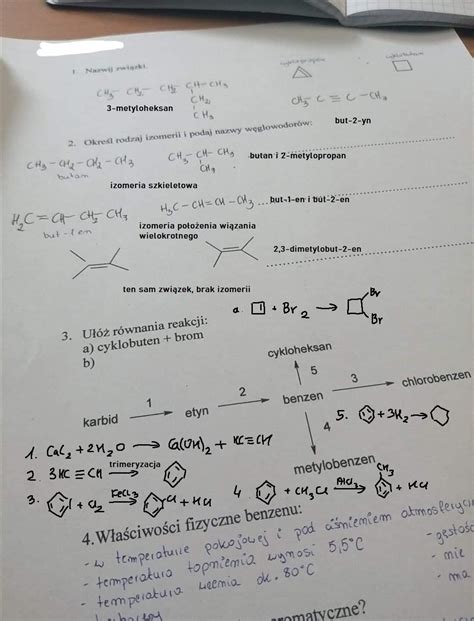 1. Nazwij związki.
cyklopropan
cyklobutan
CH₃- CH₂- CH₂ CH-CH₃
CH₂
CH₃
CH₃- C ≡ C - CH₃
3-metyloheksan
but-2-yn
2. Określ rodzaj izomerii i podaj nazwy węglowodorów:
CH₃-CH₂-CH₂-CH₃
butan
CH₃- CH- CH₃
CH₃
butan i 2-metylopropan
izomeria szkieletowa
H₂C=CH-CH₂-CH₃
but-1-en
H₃C-CH=CH-CH₃
but-1-en i but-2-en
izomeria położenia wiązania
wielokrotnego
2,3-dimetylobut-2-en
ten sam związek, brak izomerii
3. Ułóż równania reakcji:
a) cyklobuten + brom
b)
a. + Br₂ → Br
Br
cykloheksan
5
karbid 1 etyn 2 benzen 3 chlorobenzen
4
metylobenzen
5. + 3H₂ →
1. CaC₂ + 2H₂O → Ca(OH)₂ + HC≡CH
2. 3HC≡CH trimeryzacja →
3. + Cl₂ FeCl₃ → Cl + HCl
4. + CH₃Cl AlCl₃ → CH₃ + HCl
4. Właściwości fizyczne benzenu:
- w temperaturze pokojowej i pod ciśnieniem
- temperatura topnienia wynosi 5,5°C
- temperatura wrzenia ok. 80°C
- nie
- ma